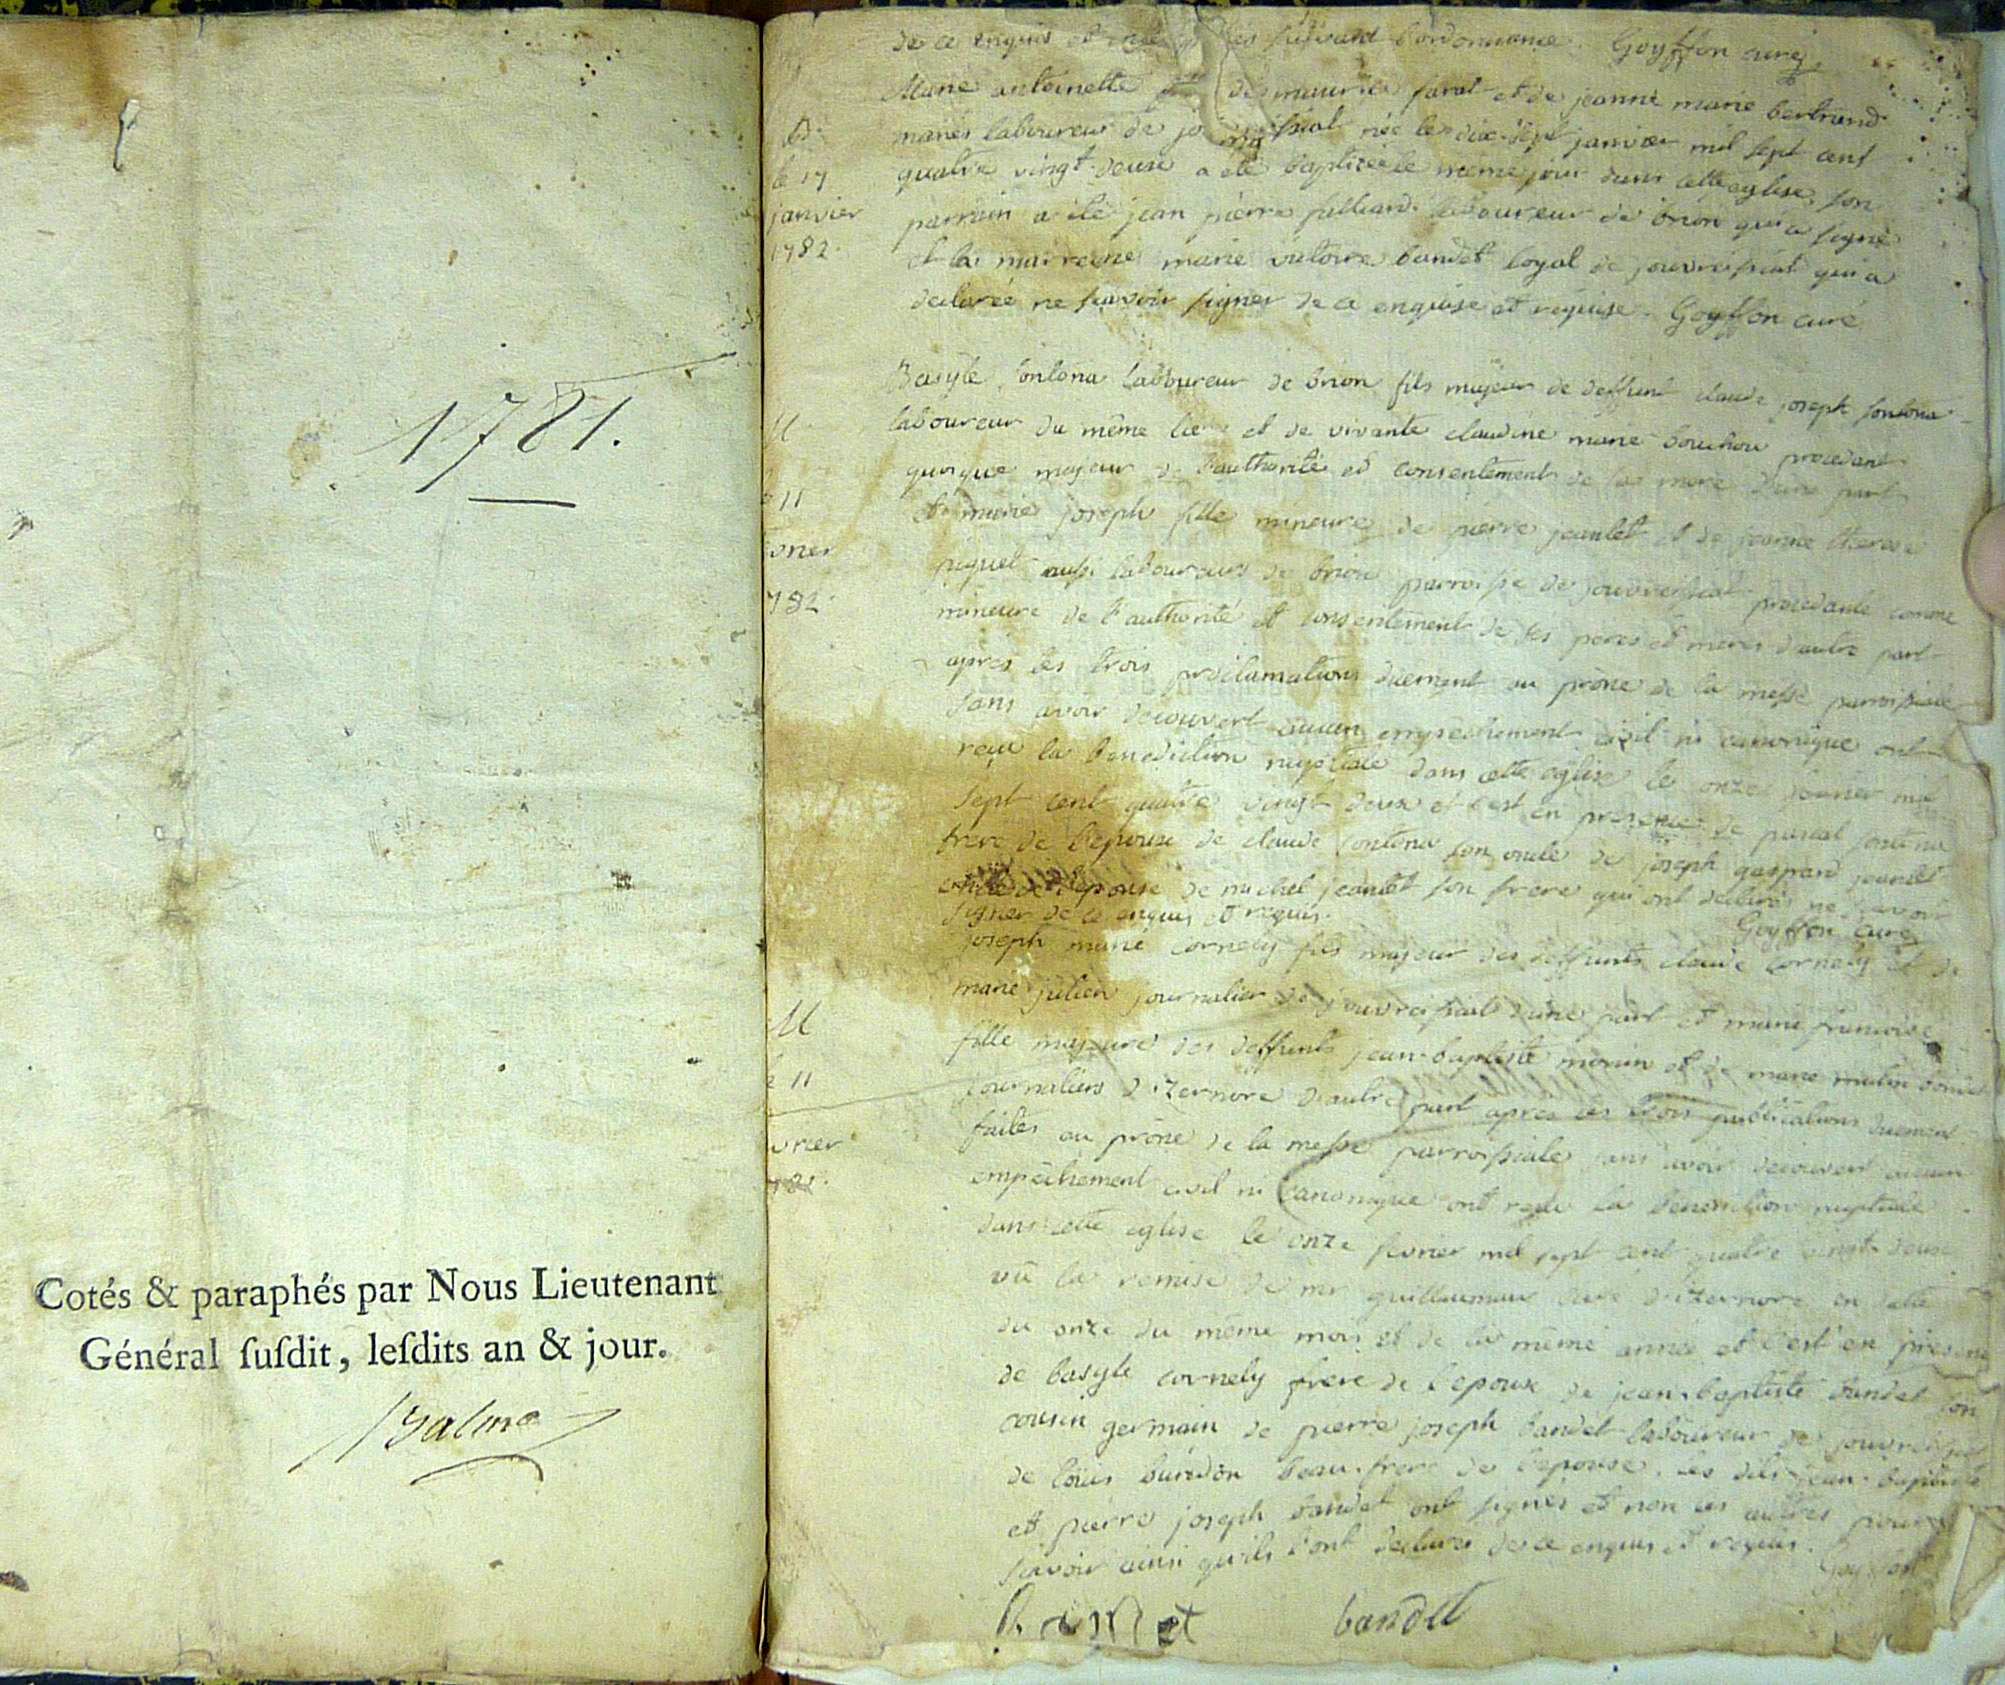 1781.
Cotés & paraphés par Nous Lieutenant
Général ſuſdit, leſdits an & jour.
Balme
de ce enquis et suivant l'ordonnance. Goyffon curé
B.
le 17
janvier
1782.
Marie antoinette de maurice favat et de jeanne marie bertrand
mariés laboureur de née le dix-sept janvier mil sept cent
quatre vingt deux a été baptisée le même jour dans cette eglise, son
parrain a été jean pierre julliard laboureur de brion qui a signé
et la marreine marie victoire bandet loyal de jouvreissiat qui a
declarée ne sçavoir signer de ce enquise et requise. Goyffon curé
M.
11
vrier
782.
Basyle fontona laboureur de brion fils majeur de deffunt claude joseph fontona
laboureur du même lieu et de vivante claudine marie bouchou procedant
quoique majeur de l'authorité et consentement de sa mere d'une part
et marie joseph fille mineure de pierre jeantet et de jeanne therese
piquet aussi laboureurs de brion parroisse de jouvreissiat procedante comme
mineure de l'authorité et consentement de ses peres et meres d'autre part
après les trois proclamations duement au prône de la messe parroissiale
sans avoir decouvert aucun empechement civil ni canonique ont
reçu la benediction nuptiale dans cette eglise le onze fevrier mil
sept cent quatre vingt deux et c'est en presence de pascal fontona
frere de l'epoux de claude fontona son oncle de joseph gaspard jeantet
oncle de l'epouse de michel jeantet son frere qui ont declarés ne sçavoir
signer de ce enquis et requis.
Goyffon curé
M
11
vrier
782.
joseph marie cornely fils majeur des deffunts claude cornely et de
marie julien journalier de jouvreissiat d'une part et marie françoise
fille majeure des deffunts jean-baptiste morin et de marie
journaliers d'izernore d'autre part après les trois publications duement
faites au prône de la messe parroissiale sans avoir decouvert aucun
empêchement civil ni canonique ont reçu la benediction nuptiale
dans cette eglise le onze fevrier mil sept cent quatre vingt deux
vû la remise de mr guillaumaux curé d'izernore en datte
du onze du même mois et de la même année et c'est en presence
de basyle cornely frere de l'epoux de jean-baptiste bandet son
cousin germain de pierre joseph bandet laboureur de jouvreissiat
de loüis burdon beau-frere de l'epouse. les dits jean-baptiste
et pierre joseph bandet ont signés et non les autres pour
sçavoir ainsi qu'ils l'ont declarés de ce enquis et requis. Goyffon
bandet bandet